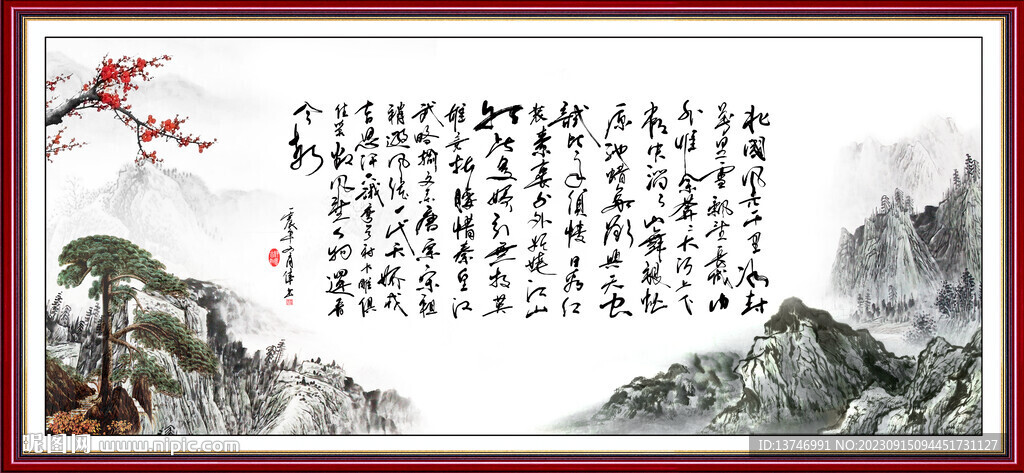 北國風光千里冰封
萬里雪飄望長城内
外惟余莽莽大河上下
頓失滔滔山舞銀蛇
原馳蜡象欲與天公
試比高須晴日看紅
裝素裹分外妖嬈江山
如此多嬌引無數英
雄競折腰惜秦皇漢
武略輸文采唐宗宋祖
稍遜風騷一代天驕成
吉思汗只識彎弓射大雕俱
往矣數風流人物還看
今朝
昵图网 www.nipic.com
ID:13746991 NO:20230915094451731127